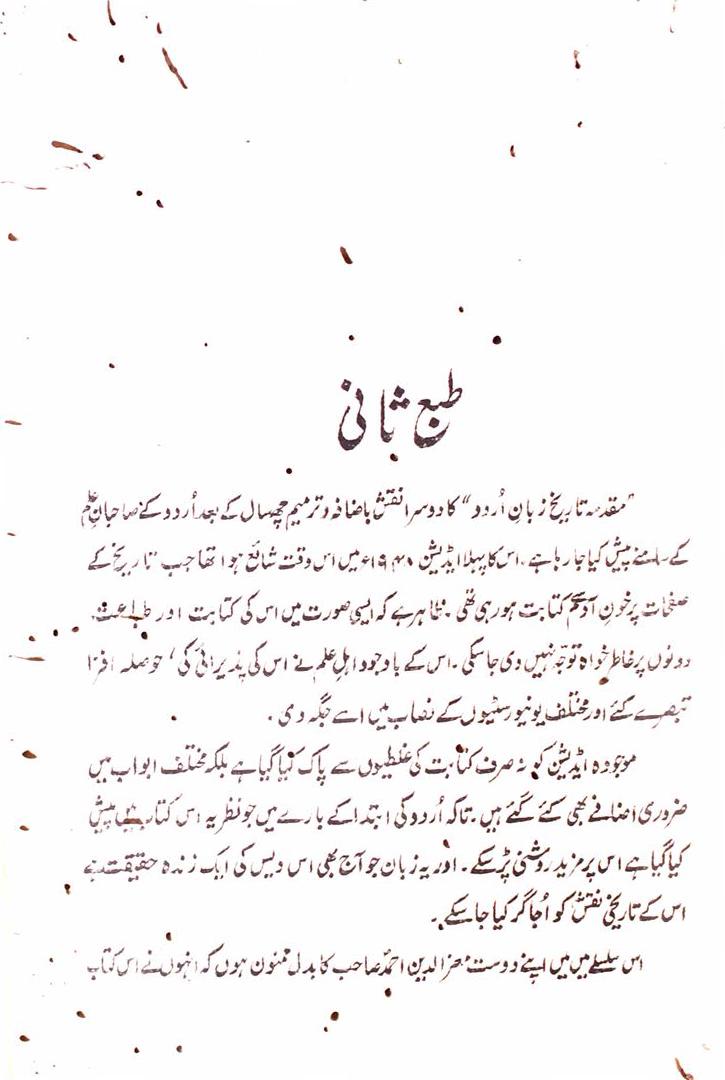 طبع ثانی
"مقدمہ تاریخ زبانِ اُردو" کا دوسرا نقش باضافہ و ترمیم چھ سال کے بعد اُردو کے صاحبانِ علم
کے سامنے پیش کیا جا رہا ہے۔ اس کا پہلا ایڈیشن ۱۹۴۸ء میں اس وقت شائع ہوا تھا جب تاریخ کے
صفحات پر خونِ آدم کتابت ہو رہی تھی۔ ظاہر ہے کہ ایسی صورت میں اس کی کتابت اور طباعت،
دونوں پر خاطر خواہ توجہ نہیں دی جا سکی۔ اس کے باوجود اہلِ علم نے اس کی پذیرائی کی، حوصلہ افزا
تبصرے کئے اور مختلف یونیورسٹیوں کے نصاب میں اسے جگہ دی۔
موجودہ ایڈیشن کو نہ صرف کتابت کی غلطیوں سے پاک کیا گیا ہے بلکہ مختلف ابواب میں
ضروری اضافے بھی کئے گئے ہیں۔ تاکہ اُردو کی ابتدا کے بارے میں جو نظریہ اس کتاب میں پیش
کیا گیا ہے اس پر مزید روشنی پڑ سکے۔ اور یہ زبان جو آج بھی اس دیس کی ایک زندہ حقیقت ہے
اس کے تاریخی نقش کو اُجاگر کیا جا سکے۔
اس سلسلے میں میں اپنے دوست معز الدین احمد صاحب کا بدل ممنون ہوں کہ انہوں نے اس کتاب